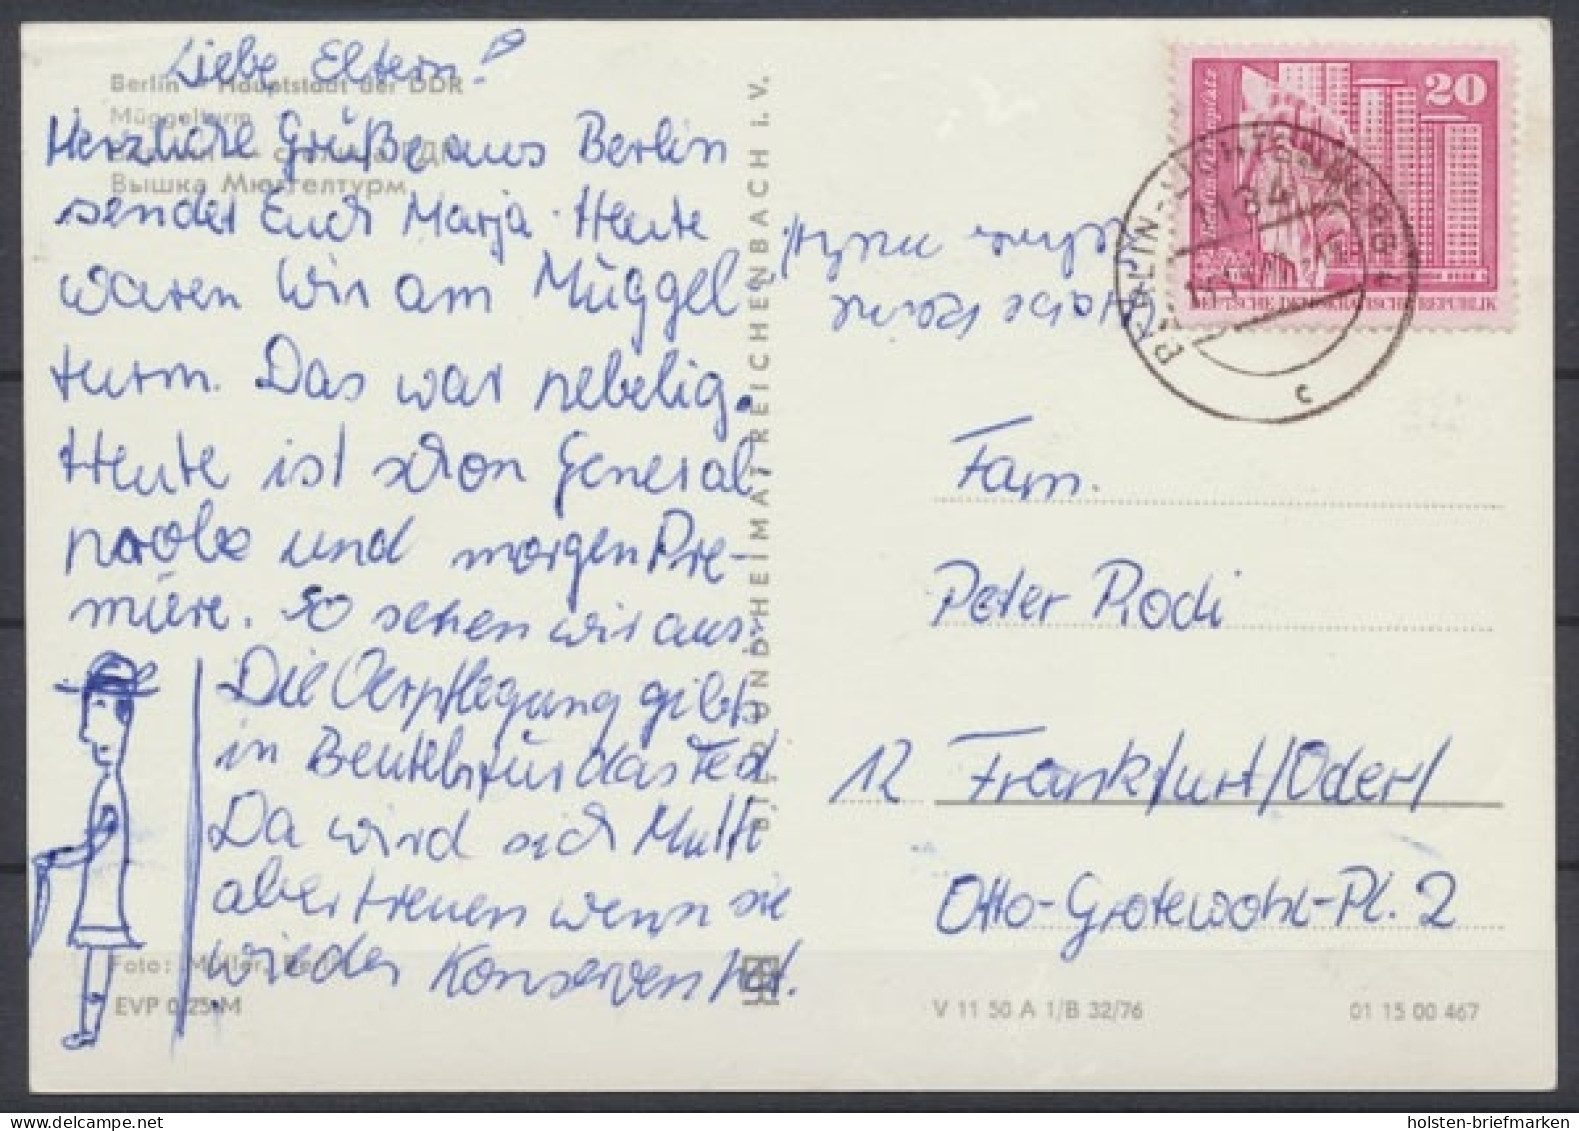 Liebe Eltern!
Berlin - Hauptstadt der DDR
Müggelturm
Вышка Мюггелтурм
Herzliche Grüße aus Berlin
sendet Euch Marja. Heute
waren wir am Müggel
turm. Das war nebelig.
Heute ist schon General
probe und morgen Pre-
miere. So sehen wir aus:
Die Verpflegung gibt
in Beutel
Da wird sich Mutti
aber freuen wenn sie
wieder Konserven hat.
Foto: Müller, Berlin
EVP 0,25 M
BILD UND HEIMAT REICHENBACH i. V.
Habe keine
20
DEUTSCHE DEMOKRATISCHE REPUBLIK
BERLIN-LICHTENBERG 1
1134
c
Fam.
Peter Rodi
12 Frankfurt/Oder
Otto-Grotewohl-Pl. 2
V 11 50 A 1/B 32/76
01 15 00 467
holsten-briefmarken